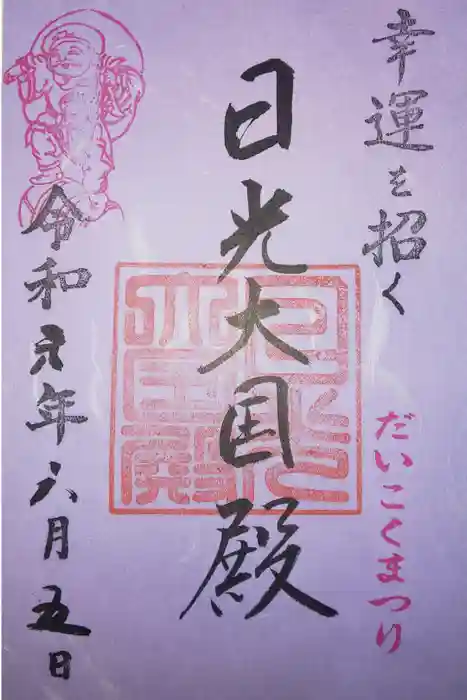 幸運を招く
だいこくまつり
日光大国殿
日光
大国殿
令和元年六月五日